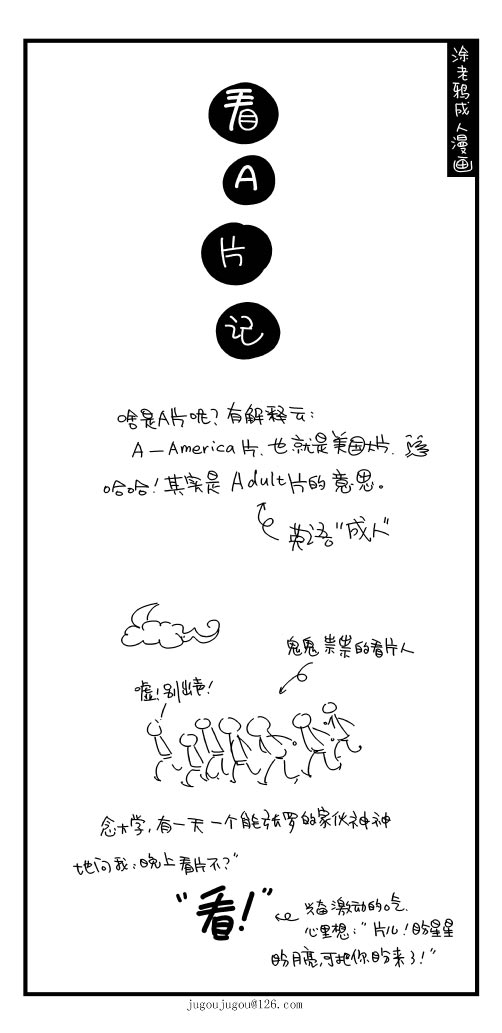 涂老鸦成人漫画
看
A
片
记
啥是A片呢?有解释云:
A—America片、也就是美国大片.
哈哈!其实是Adult片的意思。
英语"成人"
鬼鬼祟祟的看片人
嘘!别出声!
念大学,有一天一个能张罗的家伙神神
地问我:晚上看片不?"
"看!"
兴奋激动的吃.
心里想:"片儿!盼星星
盼月亮,可把你盼来了!"
jugoujugou@126.com